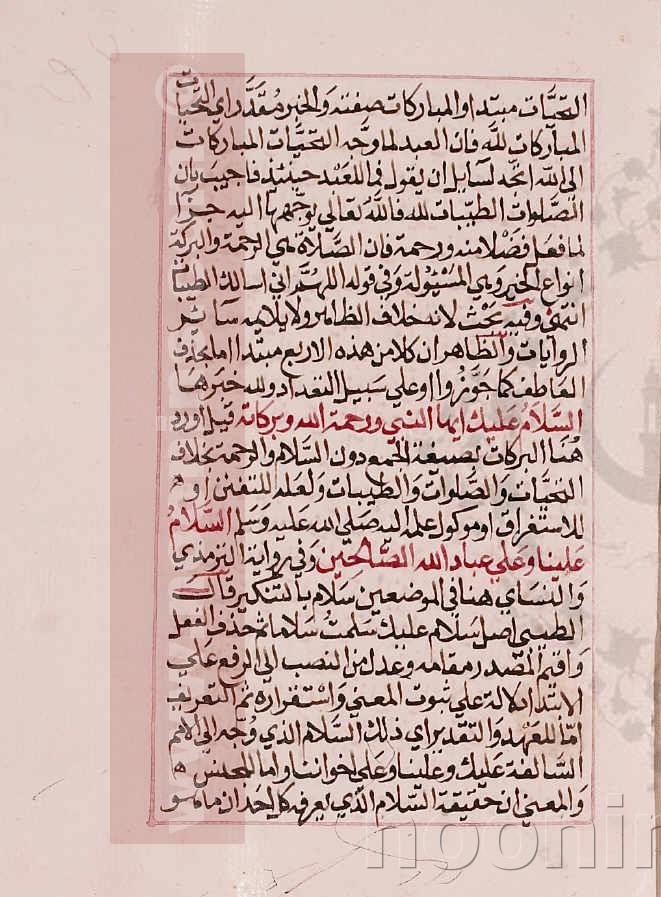 التحيات مبتدا والمباركات صفته والخبر مقدر اي التحيات
المباركات لله فان العبد لما وجه التحيات المباركات
الى الله اتجه لسايل ان يقول فما للعبد حينئذ فاجيب بان
الصلوات الطيبات لله فالله تعالى يوجهها اليه جزا
لما فعل فضلا منه ورحمة فان الصلاة هي الرحمة والبركة
انواع الخير وهي المسئولة وفي قوله اللهم اني اسالك الطيبات
انتهى وفيه بحث لانه خلاف الظاهر ولا يلايمه ساير
الروايات والظاهر ان كلا من هذه الاربع مبتدا اما بحذف
العاطف كما جوزوا او على سبيل التعداد ولله خبرها
السلام عليك ايها النبي ورحمة الله وبركاته قيل اورد
هنا البركات بصيغة الجمع دون السلام والرحمة بخلاف
التحيات والصلوات والطيبات ولعله للتفنن او
للاستغراق او موكول علمه اليه صلى الله عليه وسلم السلام
علينا وعلى عباد الله الصالحين وفي رواية الترمذي
والنساي هنا في الموضعين سلام بالتنكير قال
الطيبي اصل سلام عليك سلمت سلاما ثم حذف الفعل
واقيم المصدر مقامه وعدل من النصب الى الرفع على
الابتدا للدلالة على ثبوت المعنى واستقراره ثم التعريف
اما للعهد والتقدير اي ذلك السلام الذي وجه الى الامم
السالفة عليك وعلينا وعلى اخواننا واما للجنس
والمعنى ان حقيقة السلام الذي يعرفه كل احد ان ما هو
noorin